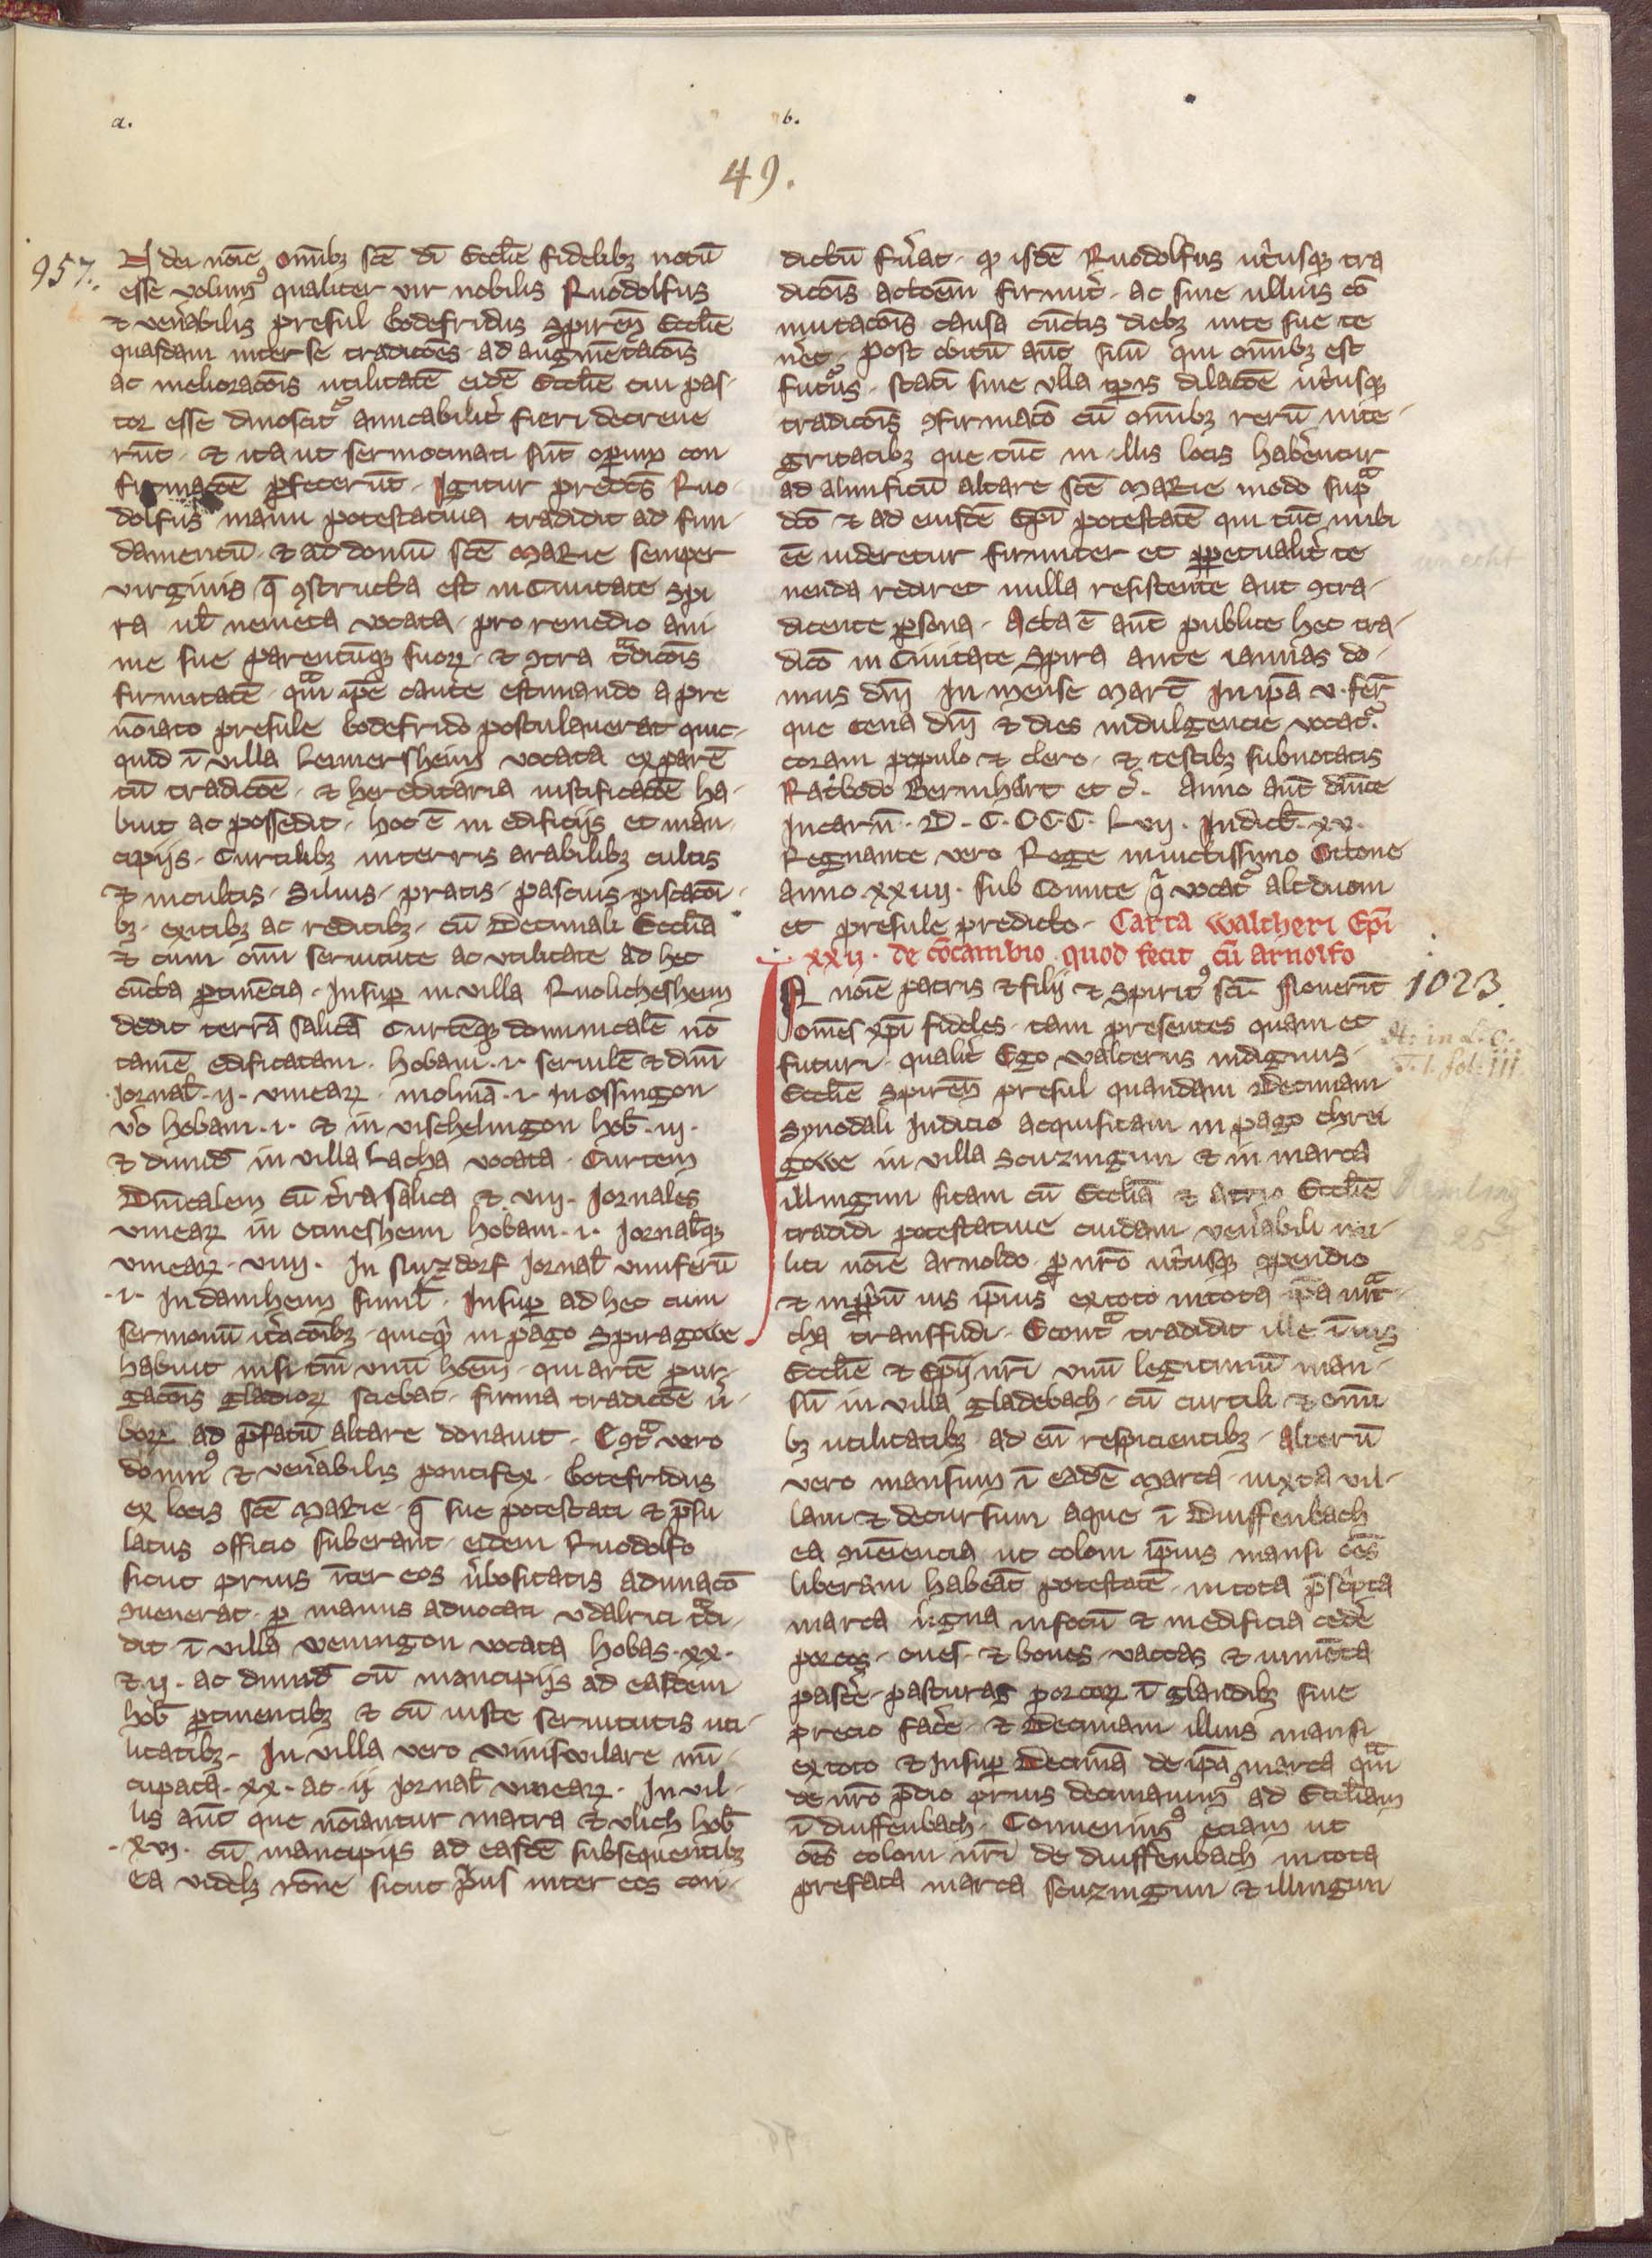 a.
b.
49.
957.
N dei noīe om̄ibꝫ scē dī Eccl̄ie fidelibꝫ notū
esse volumꝰ qualiter vir nobilis Ruodolfus
⁊ ven̄abilis presul Godefridus Spireñ Eccl̄ie
quasdam inter se tradicōes ad augmētacōis
ac melioracōis utilitatē eidē Eccl̄ie cui pas-
tor esse dinoscit᷑ amicabilit̄ fieri decreue
rūt ⁊ ita ut sermocinati sūt operum con
firmacōe ꝑfecerūt. Igitur predc̄s Ruo
dolfus manu potestatiua tradidit ad fun
damentū ⁊ ad domū scē Marie semper
virginis q̄ ꝯstructa est in Ciuitate Spi
ra ul̄ nemeta vocata pro remedio ani
me sue parentūqꝫ suoꝝ ⁊ ꝯtra t̃dicōis
firmitatē qm̃ ip̄e caute estimando a pre
noīato presule Godefrido postulauerat quic-
quid ī villa Leimersheim vocata ex parē
tū tradicōe ⁊ hereditaria iustificacōe ha-
buit ac possedit. hoc ē in edificijs et man-
cipijs. Curtilibꝫ interris arabilibꝫ cultis
⁊ incultis. Siluis. pratis. pascuis piscacōi-
bꝫ. exitibꝫ ac reditibꝫ. cū Decimali Eccl̄ia
⁊ cum om̄i seruitute ac vtilitate ad hec
cūcta ꝑtinēcia. Insuꝑ in villa Ruolichesheim
dedit terrā salicā Curtēqꝫ dominicalē nō
tamē edificatam. hobam .i. seruilē ⁊ dim̄
Jornal̄ .ij. vineaꝝ. molinā .i. in ossingon
v̄o hobam .i. ⁊ in vischelingon hob̄ .iij.
⁊ dimid̄ in villa Lacha vocata. Curtem
Dn̄icalem cū t̄ra salica ⁊ viij. Jornales
vineaꝝ in Otinesheim hobam .i. Jornal̄qꝫ
vineaꝝ. viiij. In sturzdorf Jornal̄ viniferū
.i. In damheim simil̄. Insuꝑ ad hec cum
sermonū it̄acōibꝫ quicqͥd in pago Spiragowe
habuit nisi tm̄ vnū hōīem qui artē pur-
gacōis gladioꝝ sciebat. firma tradicōe v̄
boꝝ ad p̄fatū altare donauit. Ecꝯt̃ vero
domnꝰ ⁊ ven̄abilis pontifex. Gotefridus
ex locis scē Marie q̄ sue potestati ⁊ p̄su
latus officio suberant eidem Ruodolfo
sicut prius īter eos v̄bositatis adunacō
ꝯuenerat ꝑ manus aduocati vdalrici t̃di-
dit ī villa Weningon vocata hobas .xx.
⁊ .ij. ac dimid̄ cū mancipijs ad easdem
hob̄ ꝑtinentibꝫ ⁊ cū iuste seruitutis uti-
litatibꝫ. In villa vero Winiswilare nū-
cupata .xx. ac .ij Jornal̄ vineaꝝ. In vil-
lis aūt que noīantur matra ⁊ vlich hob̄
.xvj. cū mancipijs ad easdē subsequentibꝫ
Ea videlꝫ rōne sicut p̄us inter eos con-
dictū fūat. ꝙ isdē Ruodolfus ut̄usqꝫ tra
dicōis actōem firmit̄ ac sine ullius cō
mutacōis causa cūctis diebꝫ uite sue te
n̄et. post obitū aūt suū qui om̄ibꝫ est
futurꝰ. statī sine vlla tꝑis dilacōe ut̄usqꝫ
tradicōis ꝯfirmacō cū om̄ibꝫ rerū inte-
gritatibꝫ que tūc in illis locis hab̄entur
ad almificū altare scē Marie modo sup̃
dc̄o ⁊ ad eiusdē Ep̄i potestatē qui tūc inibi
eē uideretur firmiter et ꝑpetualit̄ te
nenda rediret nulla resistente aut ꝯtra-
dicente ꝑsona. Acta ē aūt publice hec tra-
dicō in Ciuitate Spira ante ianuas do-
mus dn̄j In mense Mart̄ In ip̄a v. fer̄
que cena dn̄j ⁊ dies indulgencie vocat᷑
coram populo ⁊ clero ⁊ testibꝫ subnotatis
Rat̄bodo Bernhart et c̄. Anno aūt dn̄ice
Incarn̄. D. C.C.C.C. Lvij. Indict̄. xv.
Regnante vero Rege inuictissimo Ottone
anno xxiiij. sub Comite q̃ vocat᷑ altduom
et presule predicto. Carta Waltheri Ep̄i
xxij. de cōcambio quod fecit cū arnolfo
N noīe patris ⁊ filij ⁊ Spiritꝰ sc̄i. Nouerīt
1023.
om̄es xp̄i fideles tam presentes quam et
futuri. qualit̄ Ego Walterus indignus
Eccl̄ie Spireñ presul quandam Decimam
Synodali Iudicio acquisitam in pago chrei
gowe in villa Scuzingun ⁊ in marca
illingun sitam cū Eccl̄ia ⁊ atrio Eccl̄ie
tradidi potestatiue cuidam ven̄abili mi-
liti noīe Arnoldo. ꝓ nr̄o ut̄usqꝫ ꝯpendio
⁊ in ꝓpiū ius ip̄ius ex toto in tota ip̄a mar̃-
cha transfudi. Econt̃ tradidit ille ī ius
Eccl̄ie ⁊ Ep̄ij nr̄i vnū legitimū man-
sū in villa gladebach. cū curtili ⁊ om̄i
bꝫ utilitatibꝫ ad eū respicientibꝫ. Alterū
vero mansum ī eadē marca iuxta vil-
lam ⁊ decursum aque ī Diuffenbach
ea ꝯueniencia ut coloni ip̄ius mansi oēs
liberam habeāt potestatē in tota p̄sc̄pta
marca ligna in focū ⁊ in edificia ceder̄
porcos. oues. ⁊ boues. vaccas ⁊ iumēta
pascer̄. pasturas porcoꝝ ī glandibꝫ sine
precio facer̄. ⁊ Decimam illius mansi
ex toto ⁊ Insuꝑ Decimā de ip̄a marca qm̃
de nr̄o p̄dio prius decimauimꝰ ad Eccl̄iam
ī diuffenbach. Conuenimꝰ eciam ut
oēs coloni nr̄i de diuffenbach in tota
prefata marca Scuzingun ⁊ illingun